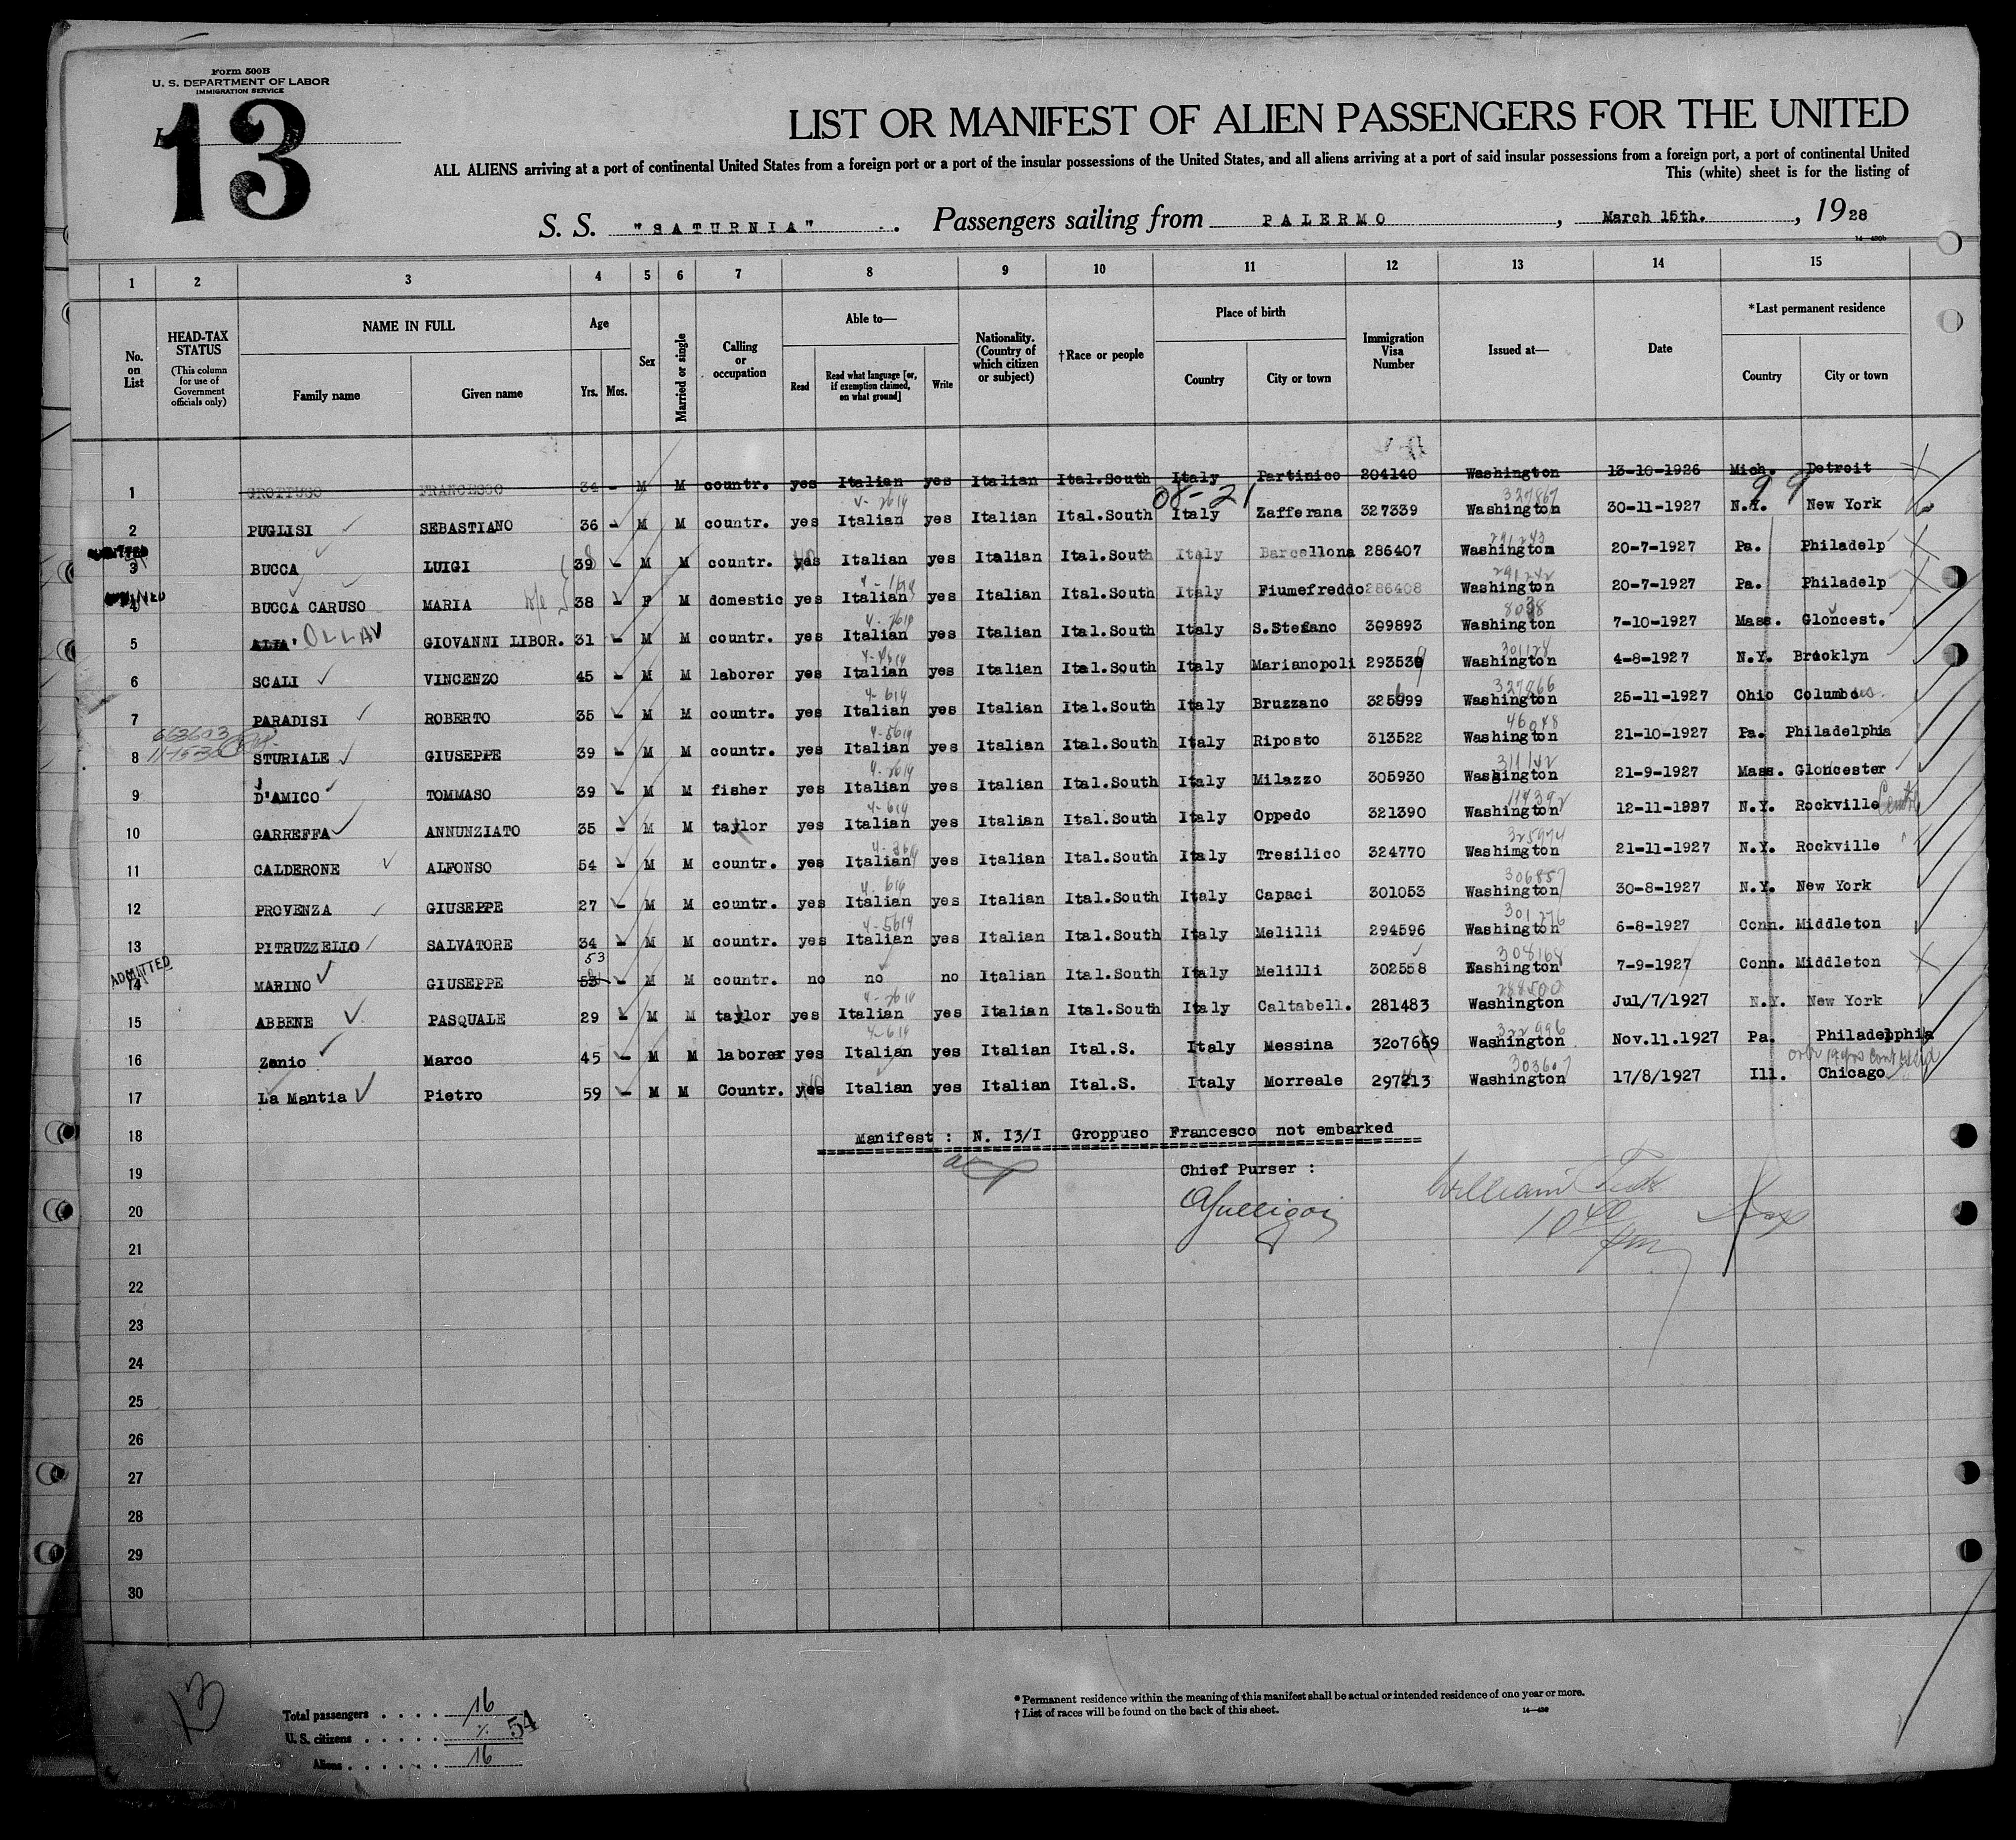 Form 500B
U. S. DEPARTMENT OF LABOR
IMMIGRATION SERVICE
13
LIST OR MANIFEST OF ALIEN PASSENGERS FOR THE UNITED
ALL ALIENS arriving at a port of continental United States from a foreign port or a port of the insular possessions of the United States, and all aliens arriving at a port of said insular possessions from a foreign port, a port of continental United
This (white) sheet is for the listing of
S. S. "SATURNIA" Passengers sailing from PALERMO, March 15th., 1928
1 2 3 4 5 6 7 8 9 10 11 12 13 14 15
No. on List HEAD-TAX STATUS (This column for use of Government officials only) NAME IN FULL Family name Given name Age Yrs. Mos. Sex Married or single Calling or occupation Able to— Read Read what language [or, if exemption claimed, on what ground] Write Nationality. (Country of which citizen or subject) †Race or people Place of birth Country City or town Immigration Visa Number Issued at— Date *Last permanent residence Country City or town
1 GROPPUSO FRANCESCO 34 - M M countr. yes Italian yes Italian Ital.South Italy Partinico 204140 Washington 13-10-1926 Mich. Detroit
08-21 99
327867
2 PUGLISI SEBASTIANO 36 - M M countr. yes Italian yes Italian Ital.South Italy Zafferana 327339 Washington 30-11-1927 N.Y. New York
291243
3 BUCCA LUIGI 39 - M M countr. yes Italian yes Italian Ital.South Italy Barcellona 286407 Washington 20-7-1927 Pa. Philadelp
291242
4 BUCCA CARUSO MARIA 38 - F M domestic yes Italian yes Italian Ital.South Italy Fiumefreddo 286408 Washington 20-7-1927 Pa. Philadelp
5 ALIA OLLA GIOVANNI LIBOR. 31 - M M countr. yes Italian yes Italian Ital.South Italy S.Stefano 309893 Washington 7-10-1927 Mass. Gloncest.
301128
6 SCALI VINCENZO 45 - M M laborer yes Italian yes Italian Ital.South Italy Marianopoli 293539 Washington 4-8-1927 N.Y. Brooklyn
327866
7 PARADISI ROBERTO 35 - M M countr. yes Italian yes Italian Ital.South Italy Bruzzano 325699 Washington 25-11-1927 Ohio Columbus
46048
8 STURIALE GIUSEPPE 39 - M M countr. yes Italian yes Italian Ital.South Italy Riposto 313522 Washington 21-10-1927 Pa. Philadelphia
311142
9 D'AMICO TOMMASO 39 - M M fisher yes Italian yes Italian Ital.South Italy Milazzo 305930 Washington 21-9-1927 Mass. Gloncester
114392
10 GARREFFA ANNUNZIATO 35 - M M taylor yes Italian yes Italian Ital.South Italy Oppedo 321390 Washington 12-11-1997 N.Y. Rockville Centre
325974
11 CALDERONE ALFONSO 54 - M M countr. yes Italian yes Italian Ital.South Italy Tresilico 324770 Washimgton 21-11-1927 N.Y. Rockville "
306857
12 PROVENZA GIUSEPPE 27 - M M countr. yes Italian yes Italian Ital.South Italy Capaci 301053 Washington 30-8-1927 N.Y. New York
301276
13 PITRUZZELLO SALVATORE 34 - M M countr. yes Italian yes Italian Ital.South Italy Melilli 294596 Washington 6-8-1927 Conn. Middleton
53 308168
ADMITTED
14 MARINO GIUSEPPE - M M countr. no no no Italian Ital.South Italy Melilli 302558 Washington 7-9-1927 Conn. Middleton
288500
15 ABBENE PASQUALE 29 - M M taylor yes Italian yes Italian Ital.South Italy Caltabell. 281483 Washington Jul/7/1927 N.Y. New York
322996
16 Zenio Marco 45 - M M laborer yes Italian yes Italian Ital.S. Italy Messina 320769 Washington Nov.11.1927 Pa. Philadelphia
303607
17 La Mantia Pietro 59 - M M Countr. yes Italian yes Italian Ital.S. Italy Morreale 297213 Washington 17/8/1927 Ill. Chicago
18 Manifest : N. I3/I Groppuso Francesco not embarked
19 Chief Purser :
20
21
22
23
24
25
26
27
28
29
30
13
Total passengers . . . . 16
U. S. citizens . . . . . 54
Aliens . . . . . . 16
* Permanent residence within the meaning of this manifest shall be actual or intended residence of one year or more.
† List of races will be found on the back of this sheet.